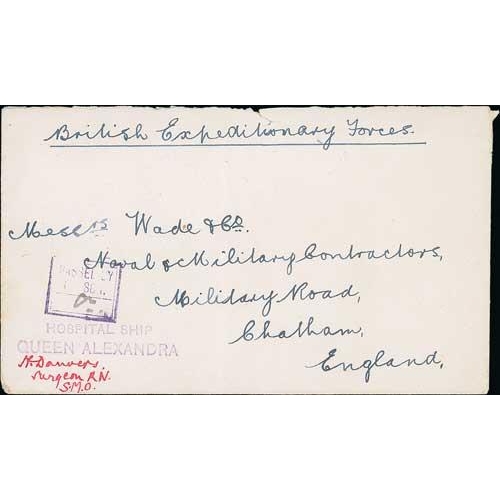 British Expeditionary Forces.
Messrs Wade & Co.
Naval & Military Contractors,
Military Road,
Chatham,
England,
PASSED BY
HOSPITAL SHIP
QUEEN ALEXANDRA
Surgeon R.N.
S.M.O.